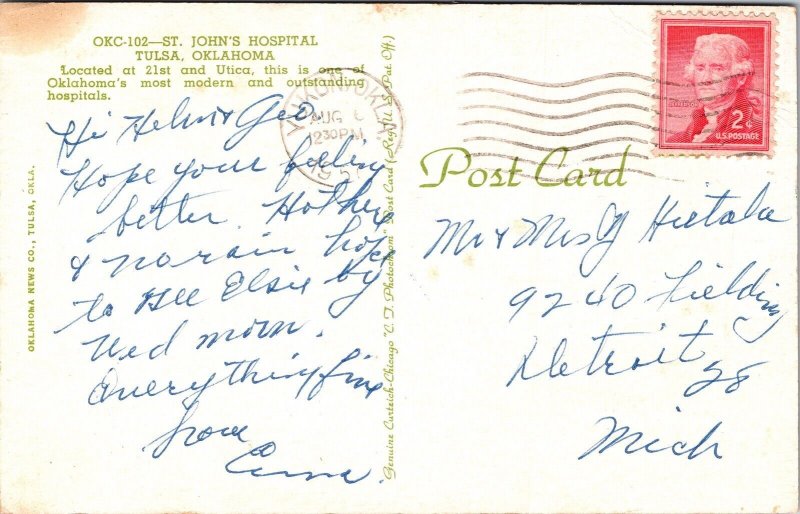 OKC-102—ST. JOHN'S HOSPITAL
TULSA, OKLAHOMA
Located at 21st and Utica, this is one of
Oklahoma's most modern and outstanding
hospitals.
Hi Helen & Geo
Hope your feeling
better. Hot here
& no rain hope
to see Elsie by
Wed morn.
Everything fine
from
OKLAHOMA NEWS CO., TULSA, OKLA.
Genuine Curteich-Chicago "C.T. Photochrom" Post Card (Reg. U.S. Pat. Off.)
YUKON, OKLA
AUG 6
12 30 PM
2¢
U.S. POSTAGE
Post Card
Mr & Mrs G Hietala
9240 Fielding
Detroit
28
Mich